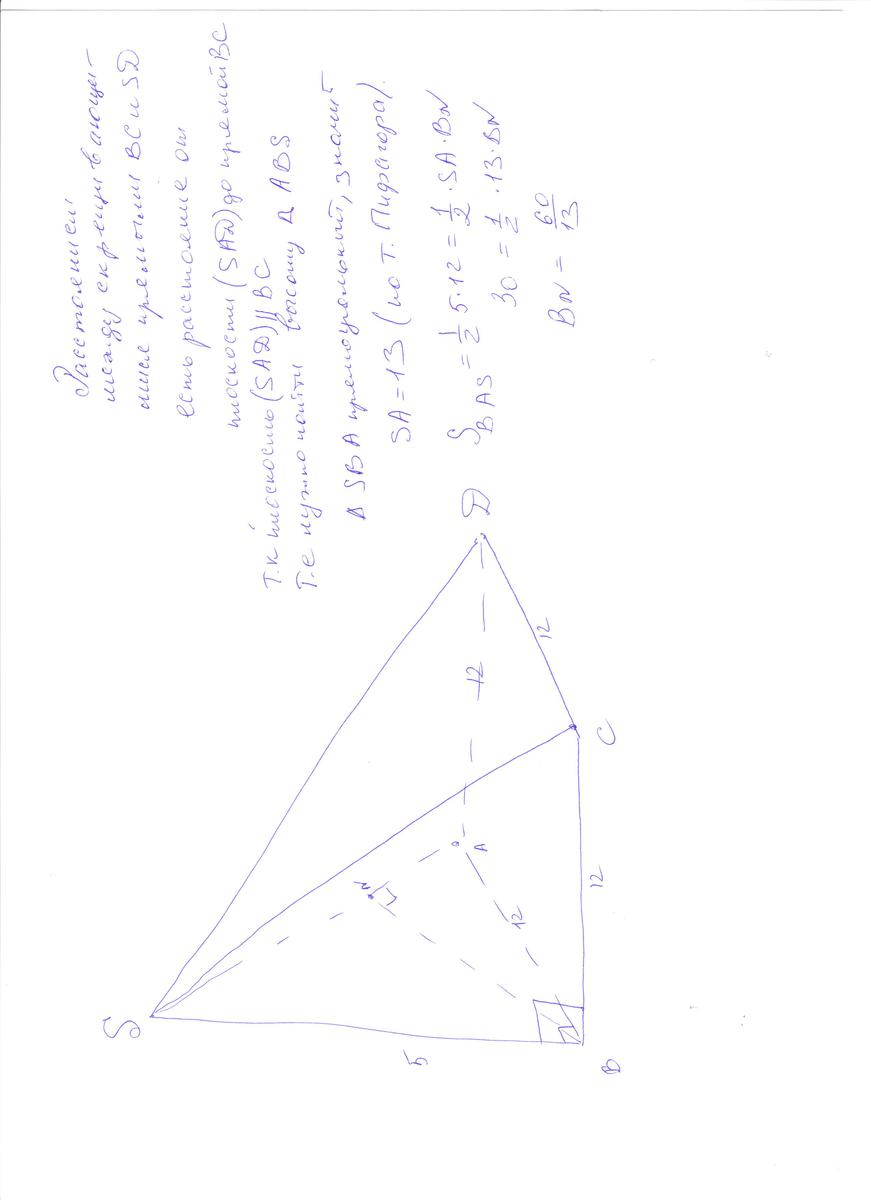 Расстоянием
между скрещивающи-
мися прямыми BC и SD
есть расстояние от
плоскости (SAD) до прямой BC
т.к плоскость (SAD) || BC
Т.е нужно найти высоту Δ ABS
Δ SBA прямоугольный, значит
SA = 13 (по т. Пифагора).
S BAS = 1/2 5·12 = 1/2 · SA · BN
30 = 1/2 · 13 · BN
BN = 60/13
S
5
N
12
A
12
D
12
B
12
C